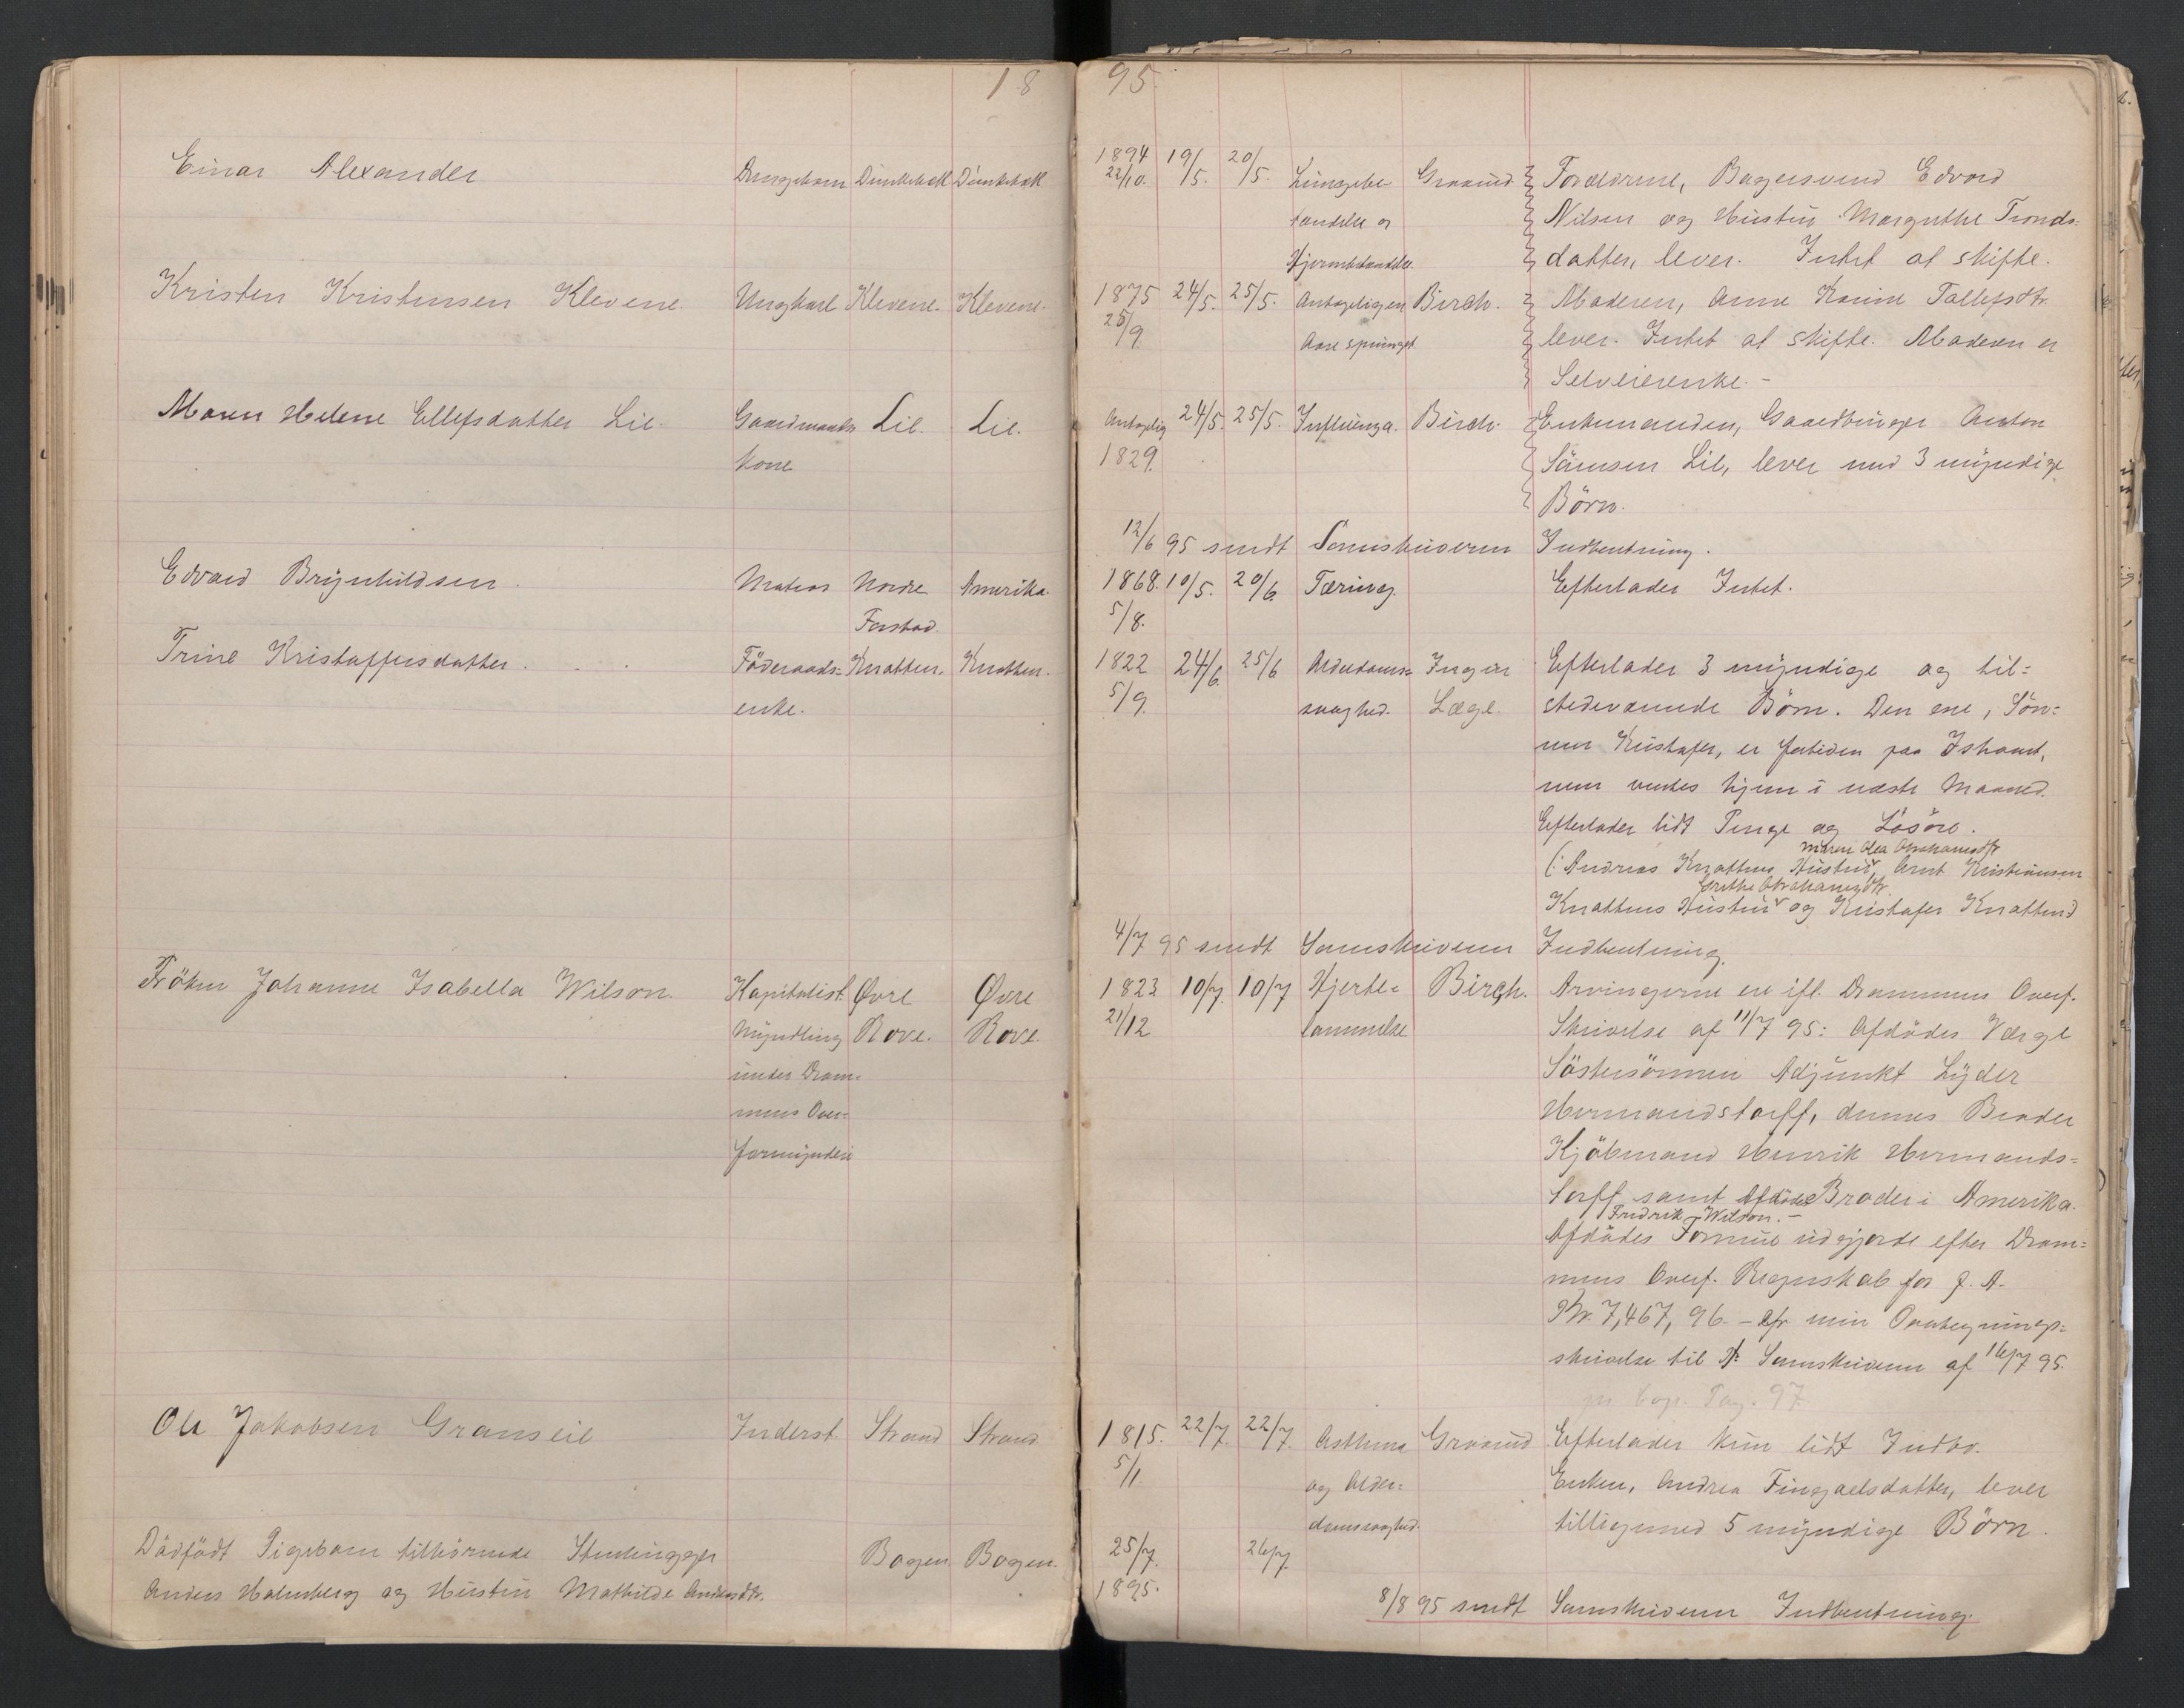 18 95
Einar Alexander Drengebarn
1894 22/10. 19/5. 20/5. Lungebe- Graarud Forældrene, Bagersvend Edvard
tændelse og Nilsen og Hustru Margrethe Tronds-
Hjernebetændelse. datter, lever. Intet at skifte.
Kristen Kristensen Klevene. Ungkarl Klevene. Klevene.
1875 24/5. 25/5. Antageligen Birch. Moderen, Anne Karine Tollefsdtr.
25/9. Aare sprunget. lever. Intet at skifte. Moderen er
Selveierenke. -
Maren Helene Ellefsdatter Lie. Gaardmands Lie. Lie.
kone
Antagelig 24/5. 25/5. Influenza. Birch. Enkemanden, Gaardbruger Anton
1829. Samsen Lie, lever med 3 myndige
Börn.
12/6 95 sendt Sorenskriveren Indberetning.
Edvard Brynhildsen. Matros Nordre Amerika.
1868. 10/5. 20/6. Tæring. Efterlader Intet.
5/8.
Trine Kristoffersdatter. Föderaads- Knatten. Knatten.
enke.
1822 24/6. 25/6 Alderdoms- Ingen Efterlader 3 myndige og til-
5/9. svaghed. Læge. stedeværende Börn. Den ene, Sön-
nen Kristofer, er fortiden paa Ishavet,
men ventes hjem i næste Maaned.
Efterlader lidt Penge og Lösöre.
Maren Olea Abrahamsdtr
(: Andreas Knattens Hustru, Arnt Kristiansen
Grethe Abrahamsdtr.
Knattens Hustru og Kristofer Knatten :)
4/7 95 sendt Sorenskriveren Indberetning.
Fröken Johanne Isabella Wilson. Kapitalist Øvre Øvre
Myndling Rove. Rove.
under Dram-
mens Over-
formynderi
1823 10/7 10/7 Hjerte- Birch. Arvingerne ere ifl. Drammens Overf.
21/12 lammelse Skrivelse af 11/7 95: Afdödes Værge
Söstersönnen Adjunkt Lyder
Hermandstorff, dennes Broder
Kjöbmand Henrik Hermands-
torff samt Afdödes Broder i Amerika.
Fredrik Wilson. -
Afdödes Formue udgjorde efter Dram-
mens Overf. Regnskab for f. A.
Kr. 7,467,96. - Cfr. min
skrivelse til Hr. Sorenskriveren af 16/7 95.
Cop. Pag. 97
Ole Jakobsen Granseie Inderst. Strand Strand
1815. 22/7. 22/7. Asthma Graarud Efterlader kun lidt Indbo.
5/1. og Alder- Enken, Andrea Fingalsdatter, lever
domssvaghed. tilligemed 5 myndige Börn.
Dödfödt Pigebarn tilhörende Stenhugger Bogen Bogen.
Anders Holmberg og Hustru Mathilde Andersdtr.
25/7. 26/7
1895.
8/8 95 sendt Sorenskriveren Indberetning.